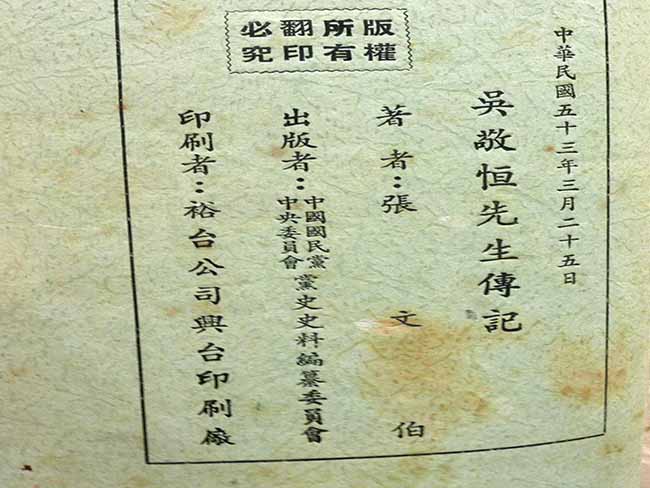 版權所有
翻印必究
中華民國五十三年三月二十五日
吳敬恒先生傳記
著者：張文伯
出版者：中國國民黨中央委員會黨史史料編纂委員會
印刷者：裕台公司興台印刷廠